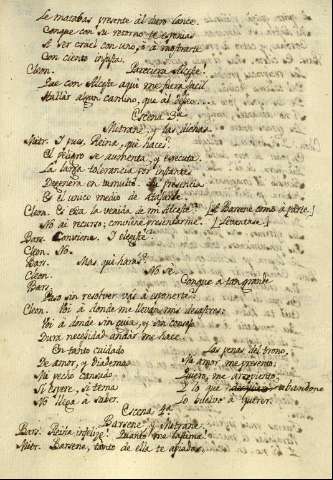 Le matabas presente el duro lance.
Conque con su retorno te espuias
A ser cruel con uno, ó á mostrarte
Con ciento infiel.
Cleon. Pareciera Alceste!
Que con Alceste aqui me fuera facil
Hallar algun camino, que al deseo
Escena 3ª
Mitrane, y las dichas
Mitr. I pues, Reina, qué haces?
El peligro se aumenta, y executa.
La larga tolerancia por instantes
Degenera en tumulto. Tu presencia
Es el unico medio de
Cleon. Es esta la venida de mi Alceste? [á Barsene como á parte.]
No ai recurso; conviene presentarme. [Levantase.]
Bars. Conviene. I elegite?
Cleon. No.
Bars. Mas, qué harás?
Cleon. No se.
Bars. Conque a tan grande
Paso sin resolver vas á esponerte?
Cleon. Voi á donde me llevan mis desastres:
Voi á donde sin guia, y sin consejo
Dura necesidad andar me hace.
En tanto cuidado
De amor, y diadema
Mi pecho cansado,
Si espere, si tema
No llega á saber.
Las penas del trono,
Mi amor, me presento:
Quiero, me arrepiento;
I lo que abandono
Lo buelvo á querer.
Escena 4ª
Barsene y Mitrane.
Bars. Reina infeliz! Quanto me lastima!
Mitr. Barsene, tanto de ella te apiadas,